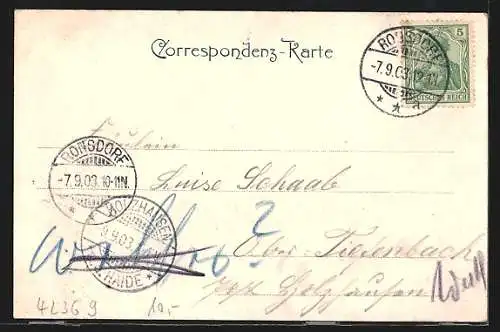 Correspondenz-Karte
5
DEUTSCHES REICH
RONSDORF
-7.9.03.
Fräulein
RONSDORF
-7.9.03.10-11N.
Luise Schaab
HOLZHAUSEN
9.9.03
HAIDE
?
Ober-Tiefenbach
Post Holzhausen
4L36 9
10,-